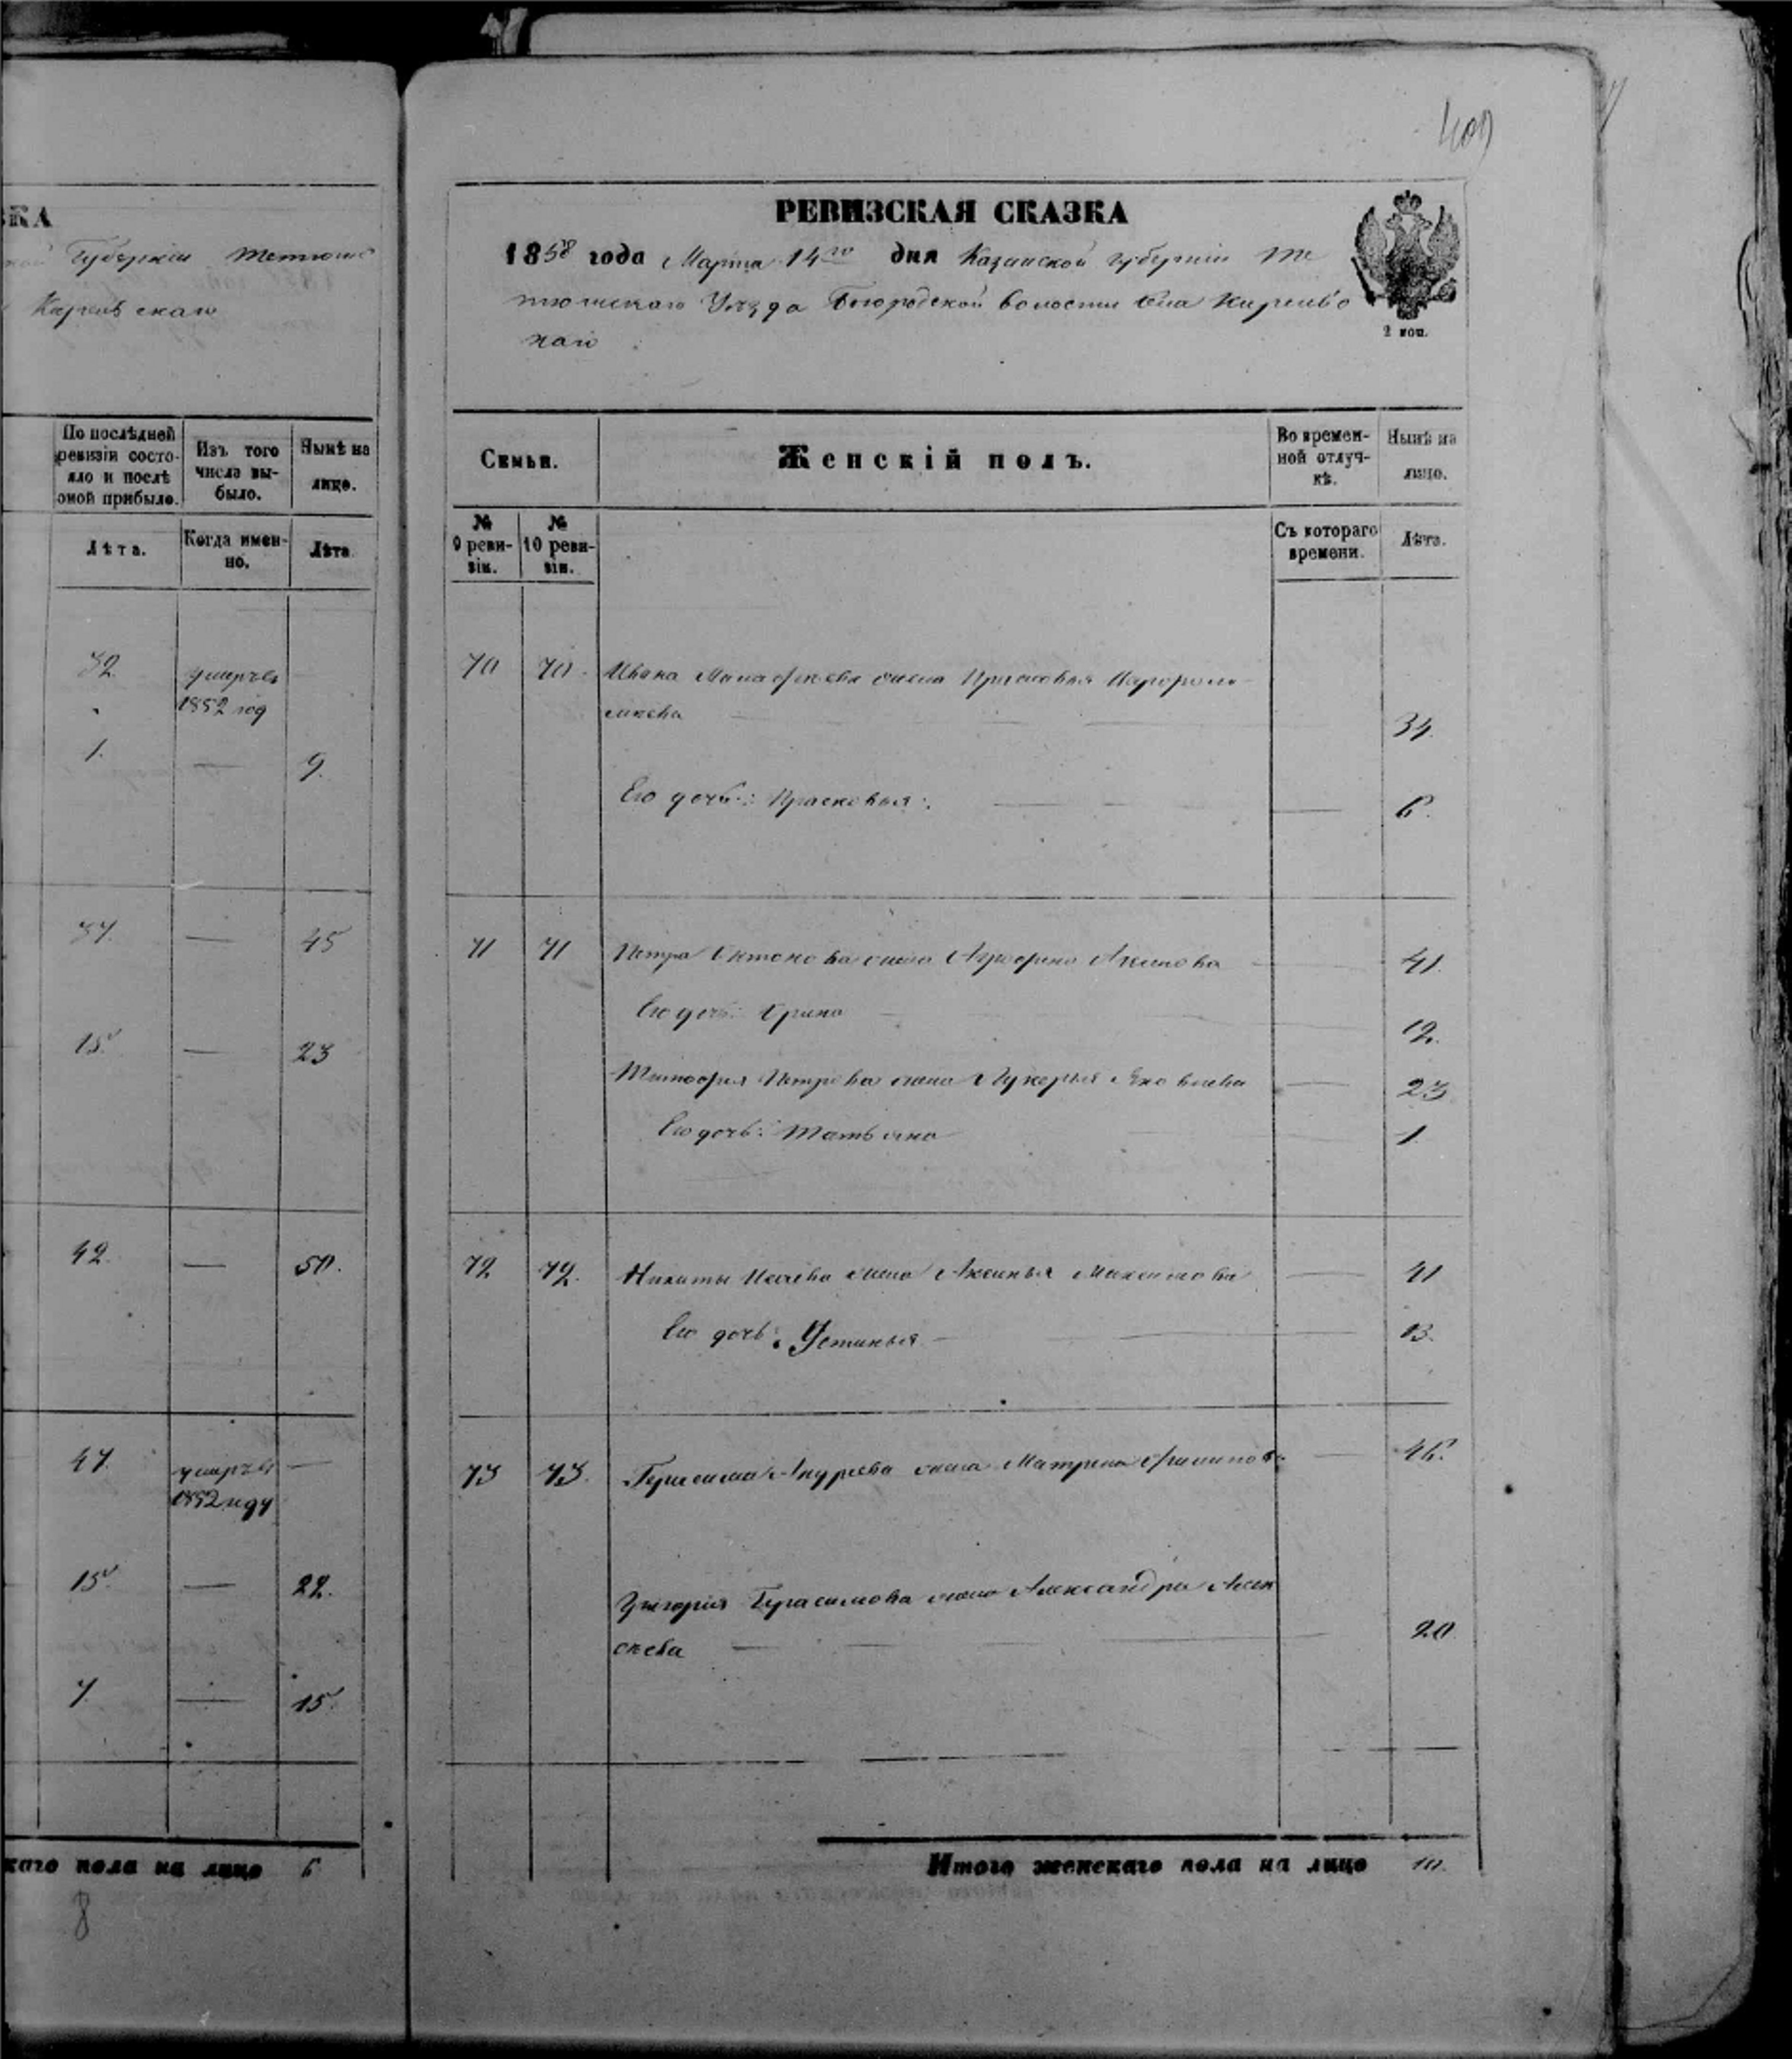 ЗКА
Губернiи Тетюшс
Киреевскаго
По послѣдней ревизiи состояло и послѣ оной прибыло.
Изъ того числа выбыло.
Нынѣ на лицо.
Лѣта.
Когда именно.
Лѣта
32
умеръ въ
1852 год
1.
—
9.
37.
—
45
15.
—
23
42.
—
50.
47.
умеръ въ
—
1852 году
15.
—
22.
7.
—
15.
каго пола на лицо 6
8
409
РЕВИЗСКАЯ СКАЗКА
1858 года Марта 14го дня Казанской губернiи Те
тюшскаго Уѣзда Богородской волости села Киреевс
каго
2 коп.
Семьи.
Женскiй полъ.
Во временной отлучкѣ.
Нынѣ на лицо.
№ 9 ревизiи.
№ 10 ревизiи.
Съ котораго времени.
Лѣта.
70
70.
Ивана жена Прасковья
34.
Его дочь: Прасковья.
6.
71
71
Петра Антонова жена Аграфена
41.
Его дочь: Орина
12.
Тимофея Петрова жена Лукерья Яковлева
23
Его дочь: Татьяна
1.
72
72.
Никиты Исаева жена Аксинья Максимова
41
Его дочь: Устинья
13.
73
73.
Герасима Андреева жена Матрена Филипова
46.
Григорiя Герасимова жена Александра Алек
сеева
20
Итого женскаго пола на лицо 10.